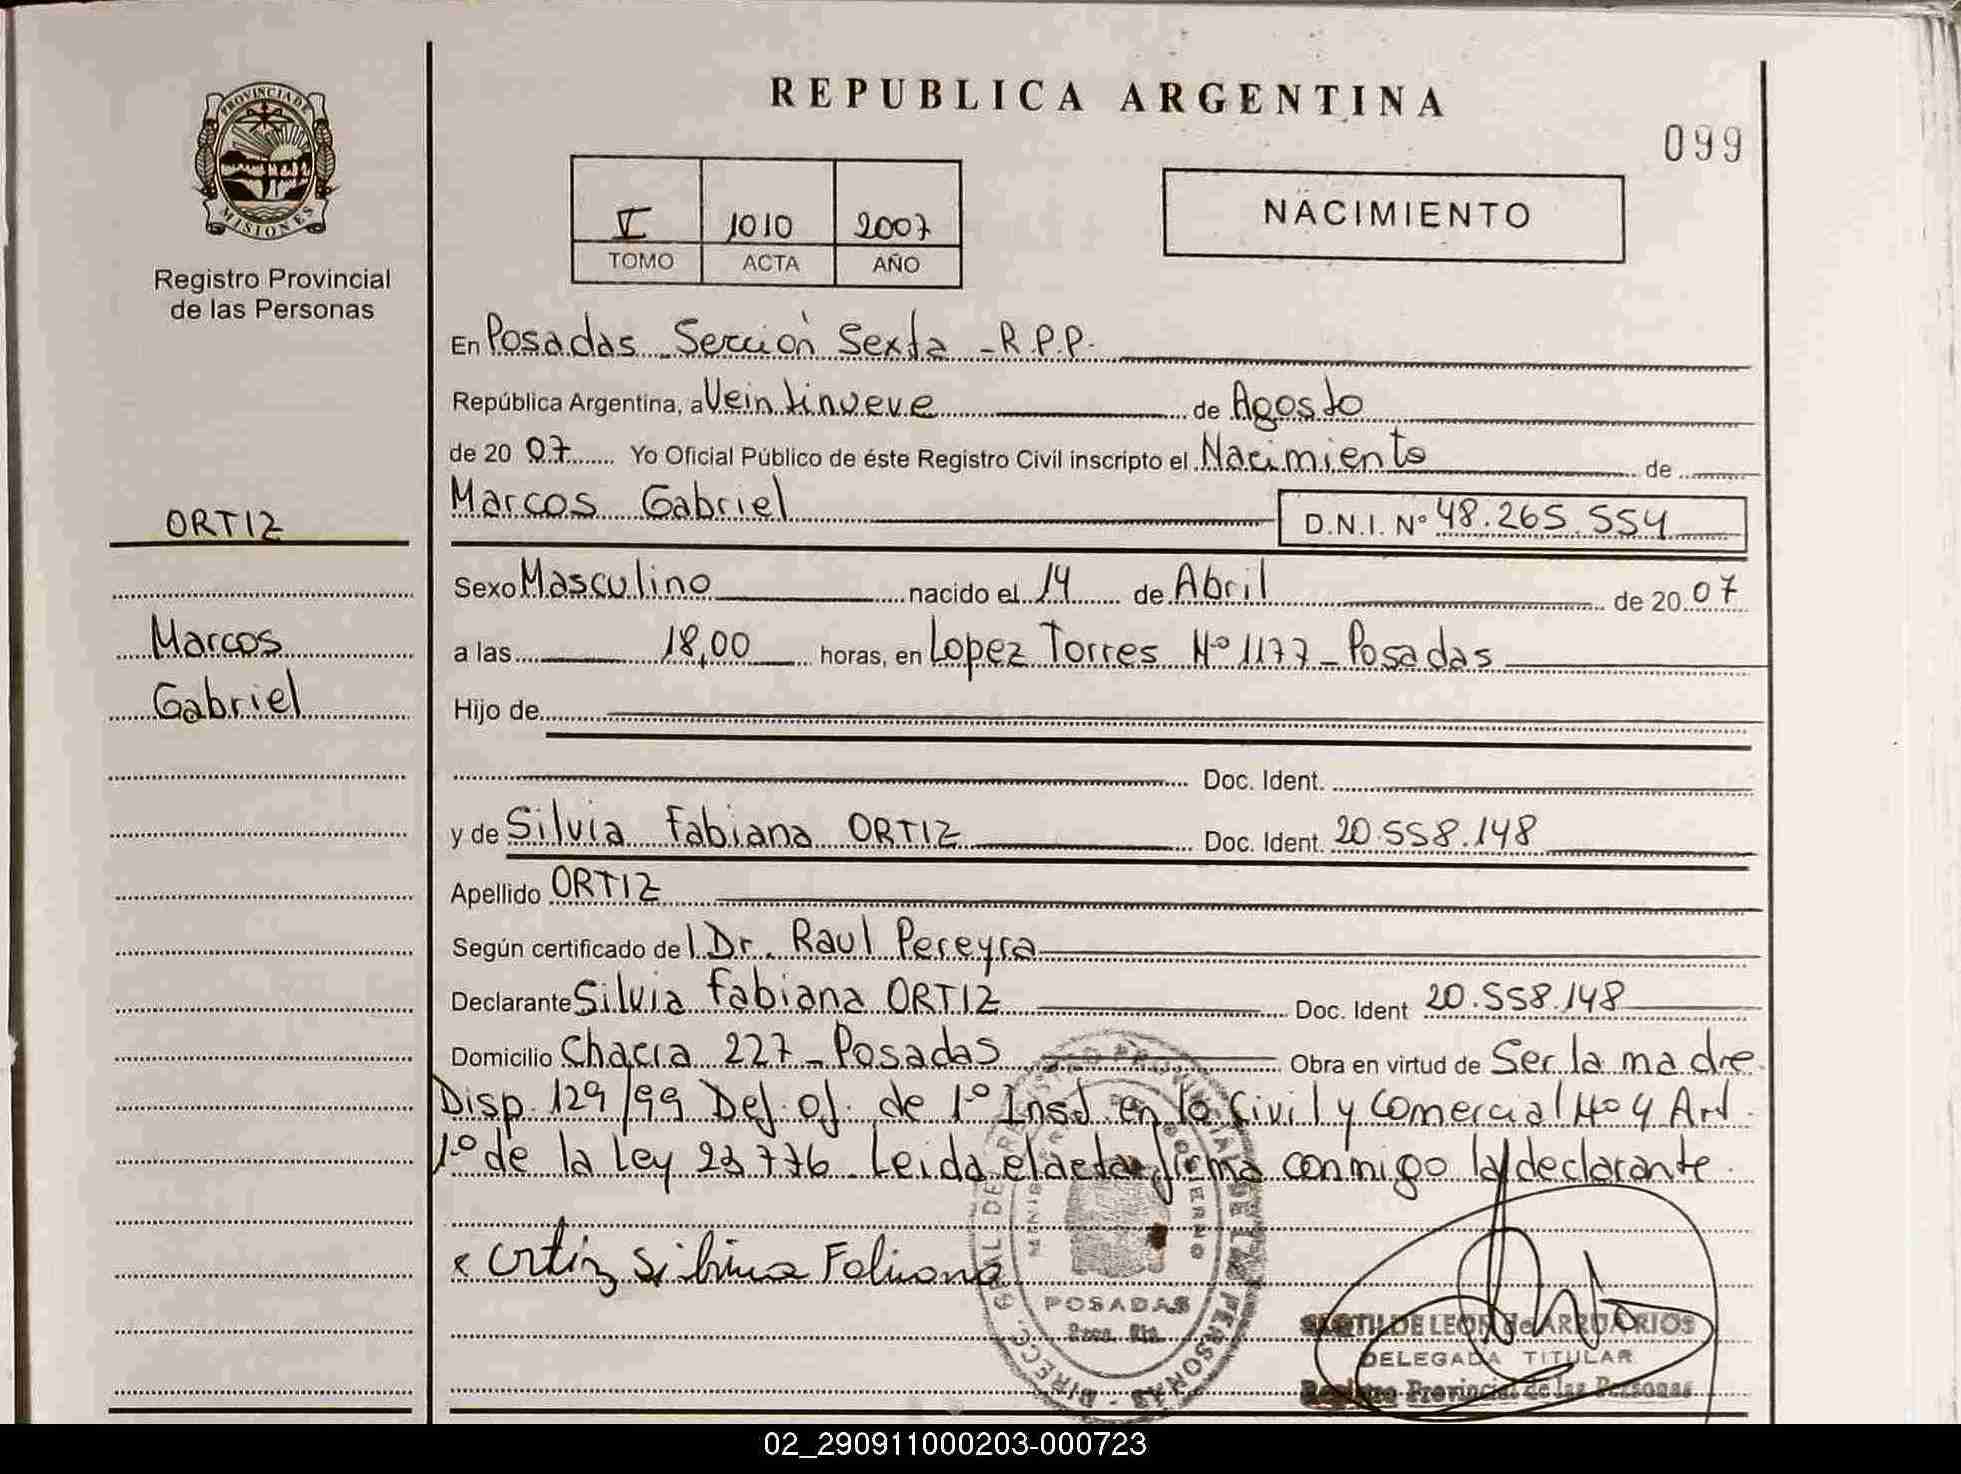 REPUBLICA ARGENTINA
099
PROVINCIA DE
MISIONES
Registro Provincial
de las Personas
I 1010 2007
TOMO ACTA AÑO
NACIMIENTO
En Posadas Sección Sexta - R.P.P.
República Argentina, a Veintinueve de Agosto
de 20 07 Yo Oficial Público de éste Registro Civil inscripto el Nacimiento de
Marcos Gabriel D.N.I. Nº 48.265.554
ORTIZ
Sexo Masculino nacido el 14 de Abril de 20 07
Marcos
a las 18,00 horas, en Lopez Torres Nº 1177 - Posadas
Gabriel
Hijo de
Doc. Ident.
y de Silvia Fabiana ORTIZ Doc. Ident. 20.558.148
Apellido ORTIZ
Según certificado de l Dr. Raul Pereyra
Declarante Silvia Fabiana ORTIZ Doc. Ident 20.558.148
Domicilio Chacra 227 - Posadas Obra en virtud de Ser la madre
Disp. 129/99 Def. of. de 1º Inst. en lo Civil y Comercial Nº 4 Art.
1º de la ley 23776 Leida el acta firma conmigo la declarante
Ortiz Silvina Fabiana
POSADAS
DELEGADA TITULAR
Registro Provincial de las Personas
02_290911000203-000723